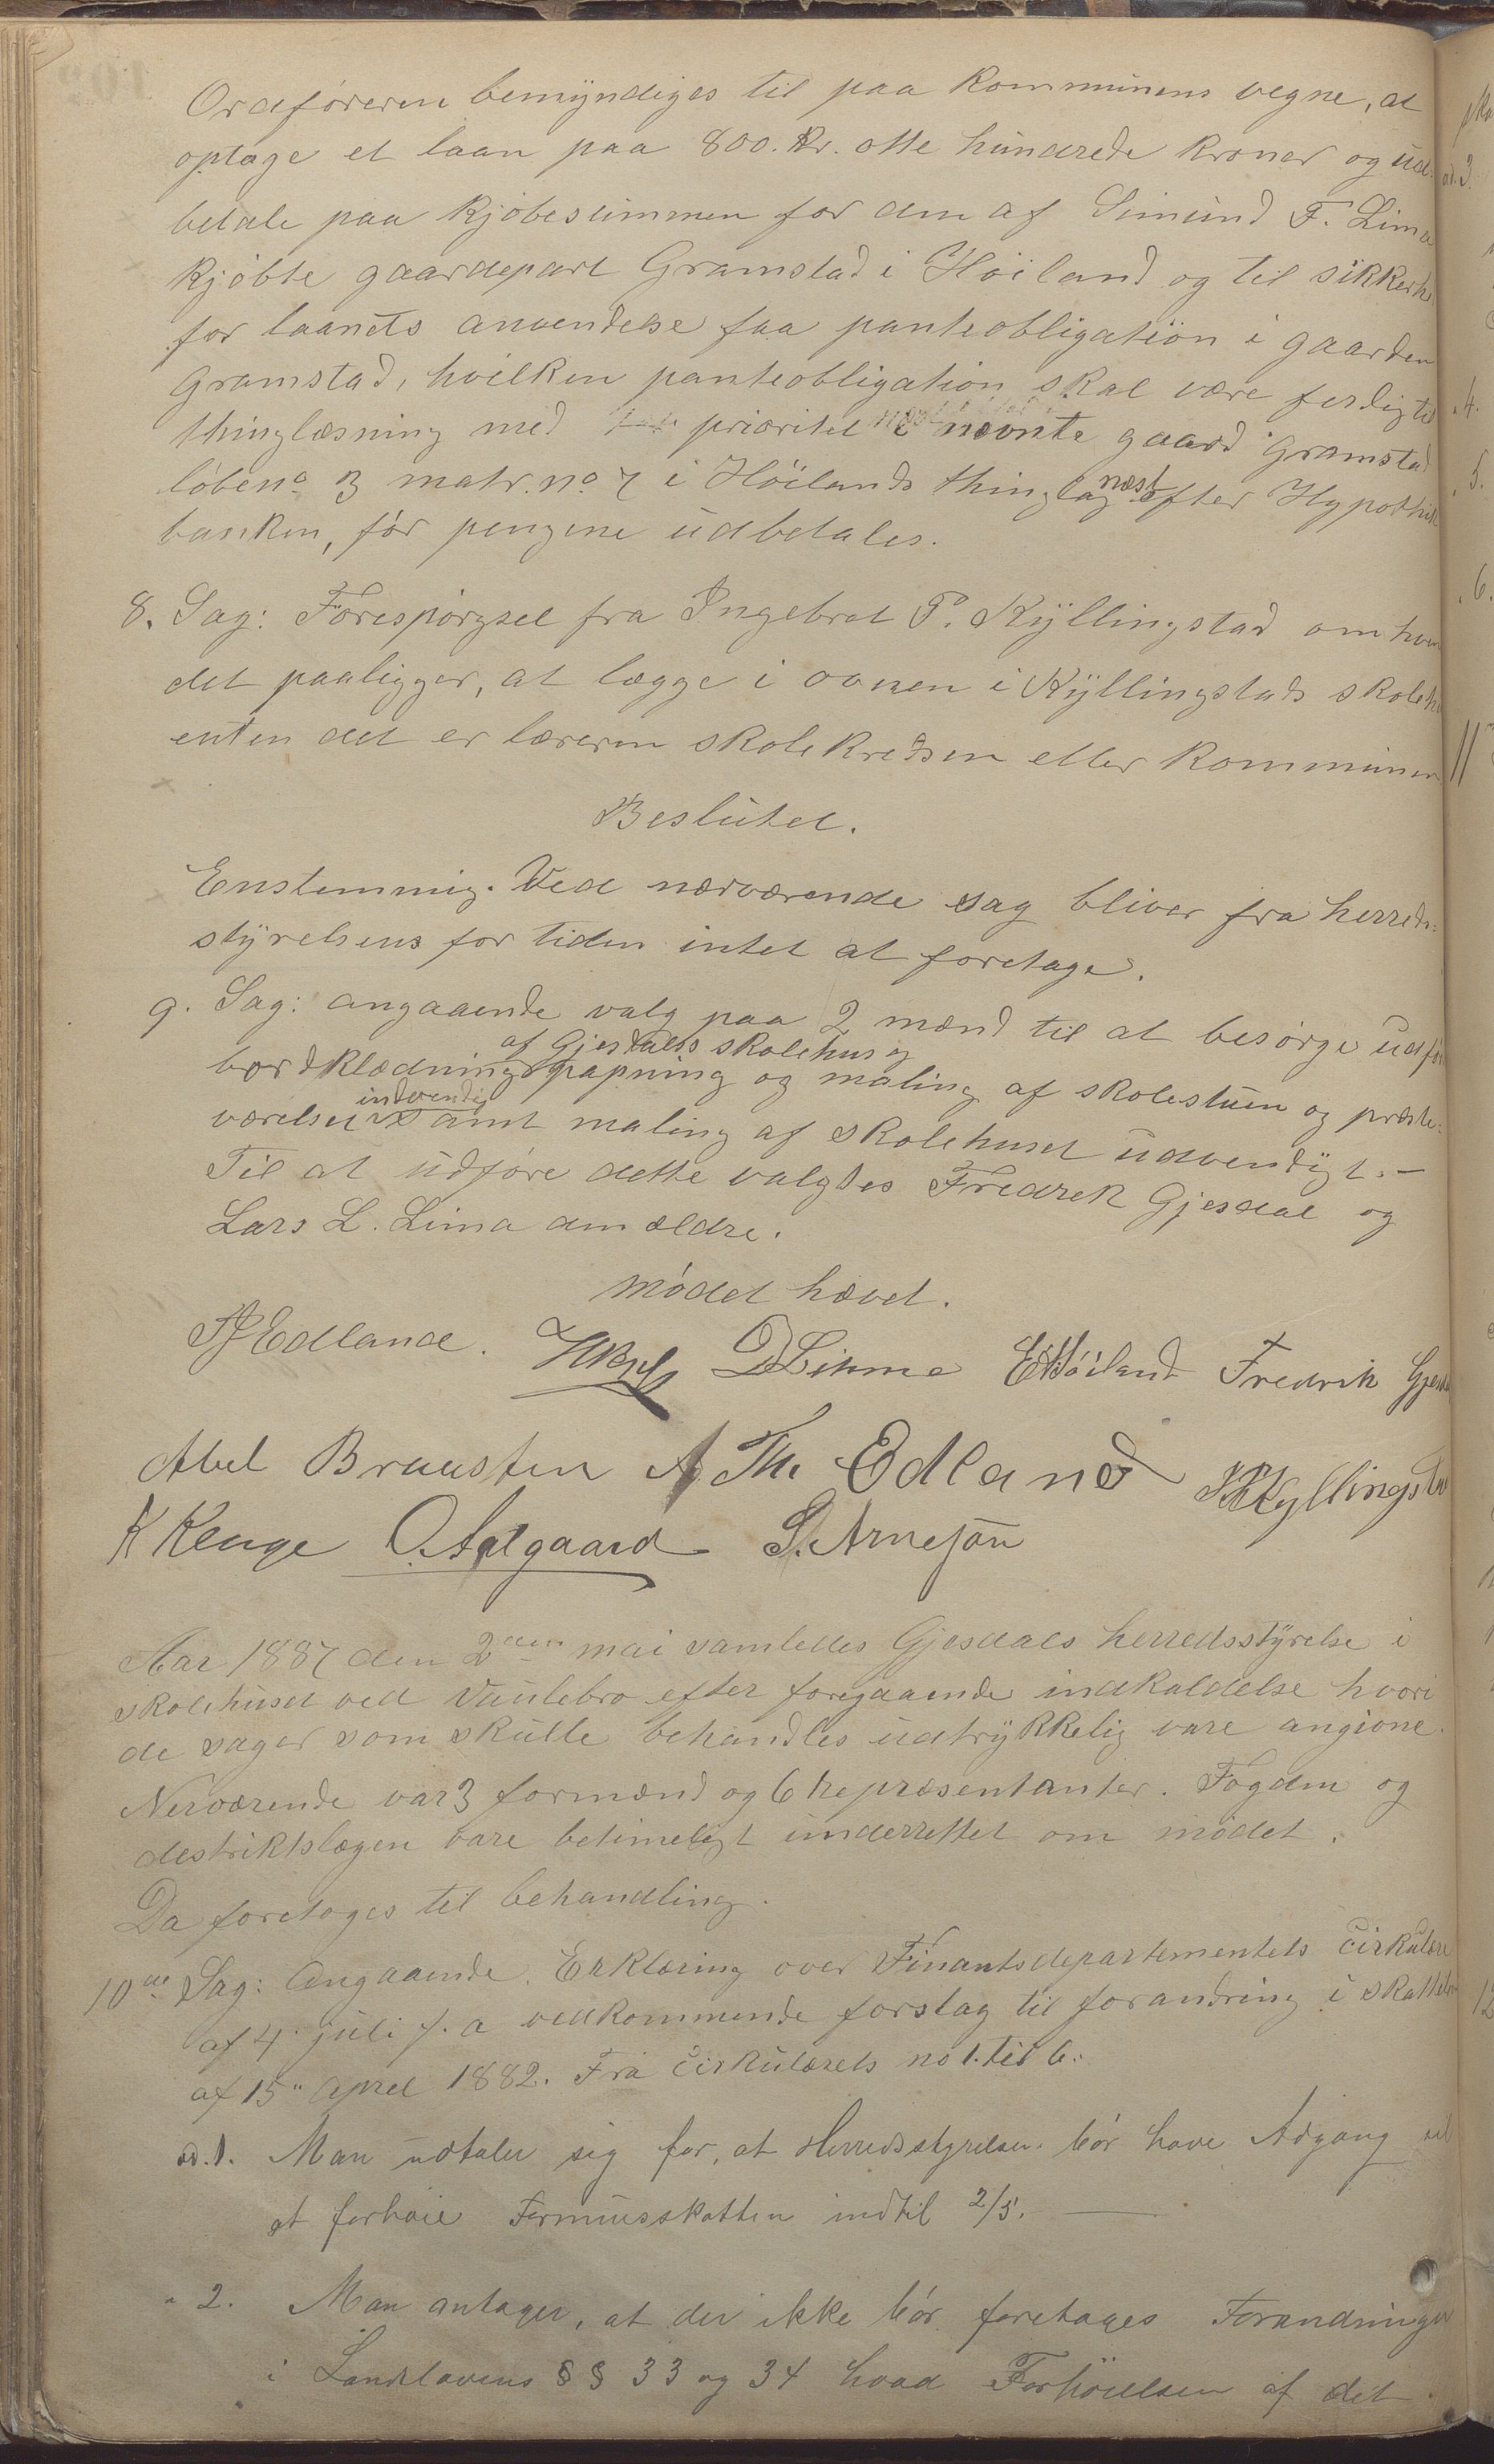 Ordføreren bemyndiges til paa kommunens vegne, at
optage et laan paa 800. Kr. otte hundrede kroner og ud-
betale paa kjøbesummen for den af Simund T. Lima
kjøbte gaardepart Gramstad i Höiland og til sikkerhe
for laanets anvendelse faa panteobligation i gaarden
Gramstad, hvilken panteobligation skal være ferdig til
thinglæsning med prioritet i nævnte gaard Gramstad
løbeno. 3 matr. no. 7 i Höilands thinglag næst efter Hypothek
banken, før pengene udbetales.
8. Sag: Forespørgsel fra Ingebret P. Kyllingstad om hvem
det paaligger, at lægge i ovnen i Kyllingstads skolehu
enten det er læreren skolekredsen eller kommunen
Beslutet.
Enstemmig. Ved nærværende sag bliver fra herreds-
styrelsens for tiden intet at foretage.
9. Sag: angaaende valg paa 2 mænd til at besørge udfør
af Gjesdals skolehus og
bordklædning papning og maling af skolestuen og præste-
indvendig
værelset samt maling af skolehuset udvendigt. —
Til at udføre dette valgtes Fredrek Gjesdal og
Lars L. Lima den ældre.
Mødet hævet.
Edland. D Limme E Höiland Fredrik Gjesda
Abel Bruusten A Th. Edland Kyllingsta
K Kenge O. Aalgaard S. Arneson
Aar 1887 den 2den mai samledes Gjesdals herredsstyrelse i
skolehuset ved Vaulebro efter foregaaende indkaldelse hvori
de sager som skulle behandles udtrykkelig vare angivne.
Nerværende var 3 formænd og 6 repræsentanter. Fogden og
destriktslægen vare betimeligt underrettet om mødet.
Da foretoges til behandling.
10de Sag: Angaaende. Erklæring over Finantsdepartementets Cirkulære
af 4. juli f. a vedkommende forslag til forandring i skattelov
af 15" April 1882. Fra Cirkulærets no 1. til 6.
ad. 1. Man udtaler sig for, at Herredsstyrelsen bör have Adgang til
at forhøie Formuesskatten indtil 2/5. —
" 2. Man antager, at der ikke bör foretages Forandringer
i Landslovens §§ 33 og 34 hvad Forhöielsen af det